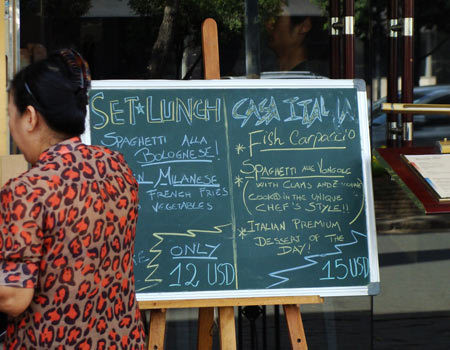 SET★LUNCH
SPAGHETTI ALLA
BOLOGNESE!
MILANESE
FRENCH FRIES
VEGETABLES
ONLY
12 USD
CASA ITALIA
* Fish Carpaccio
* SPAGHETTI ALLE VONGOLE
WITH CLAMS AND
(COOKED IN THE UNIQUE
CHEF'S STYLE!!)
* ITALIAN PREMIUM
DESSERT OF THE
DAY!
15 USD